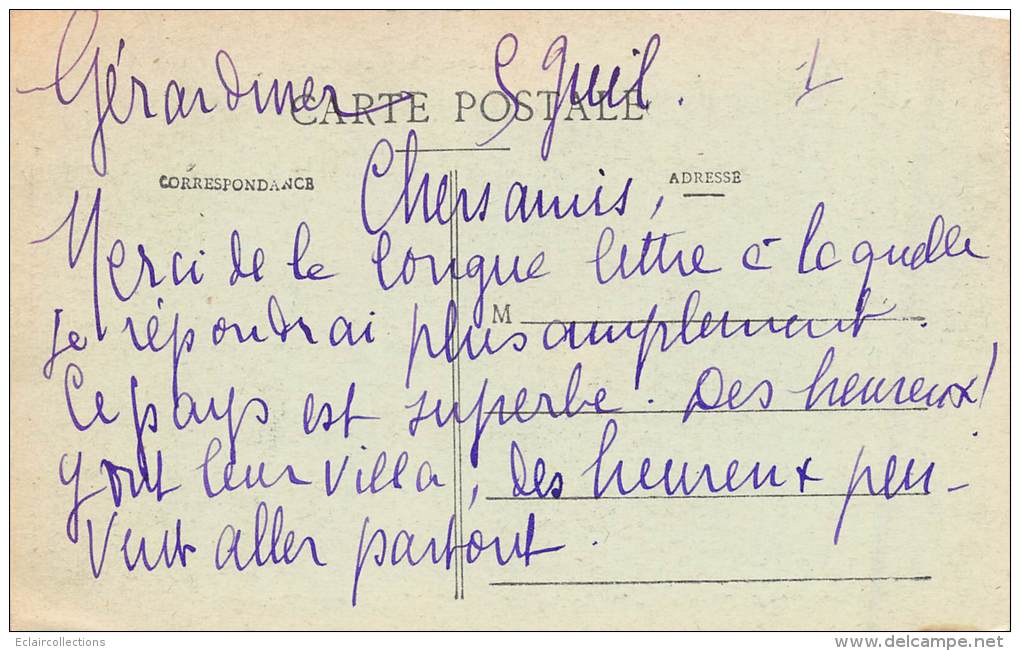 Gérardmer 5 Juil. 1
CARTE POSTALE
CORRESPONDANCE
ADRESSE
Chers amis,
Merci de la longue lettre à laquelle
je répondrai plus amplement.
M
Ce pays est superbe. Des heureux!
y ont leur villa, des heureux peu-
vent aller partout.
Eclaircollections
www.delcampe.net